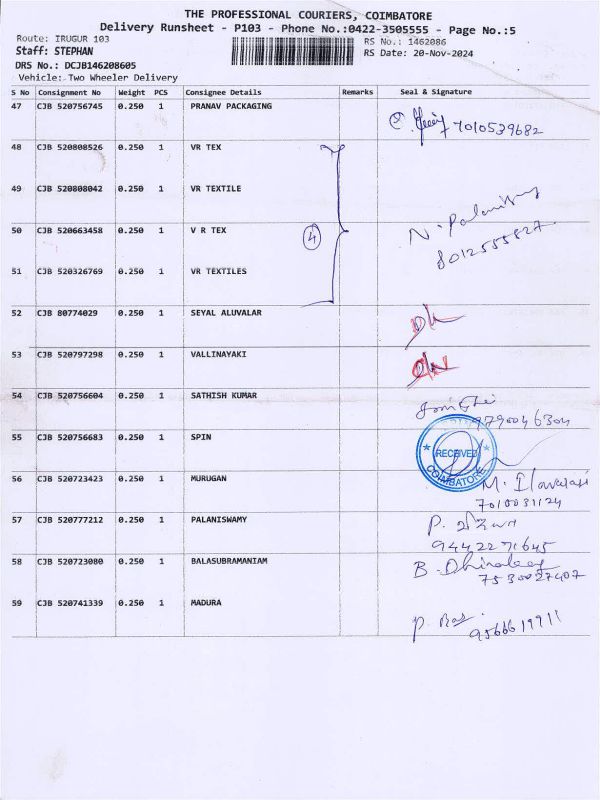 THE PROFESSIONAL COURIERS, COIMBATORE
Delivery Runsheet - P103 - Phone No.:0422-3505555 - Page No.:5
Route: IRUGUR 103
RS No.: 1462086
Staff: STEPHAN
RS Date: 20-Nov-2024
DRS No.: DCJB146208605
Vehicle: Two Wheeler Delivery
S No Consignment No Weight PCS Consignee Details Remarks Seal & Signature
47 CJB 520756745 0.250 1 PRANAV PACKAGING
7010539682
48 CJB 520808526 0.250 1 VR TEX
49 CJB 520808042 0.250 1 VR TEXTILE
N. Palanisamy
50 CJB 520663458 0.250 1 V R TEX
4
8012555827
51 CJB 520326769 0.250 1 VR TEXTILES
52 CJB 80774029 0.250 1 SEYAL ALUVALAR
53 CJB 520797298 0.250 1 VALLINAYAKI
54 CJB 520756604 0.250 1 SATHISH KUMAR
9790046304
55 CJB 520756683 0.250 1 SPIN
RECEIVED
COIMBATORE
56 CJB 520723423 0.250 1 MURUGAN
M. Ilavarasi
7010031124
57 CJB 520777212 0.250 1 PALANISWAMY
P.
9442271645
58 CJB 520723080 0.250 1 BALASUBRAMANIAM
B.
7530027407
59 CJB 520741339 0.250 1 MADURA
P.
9566619911